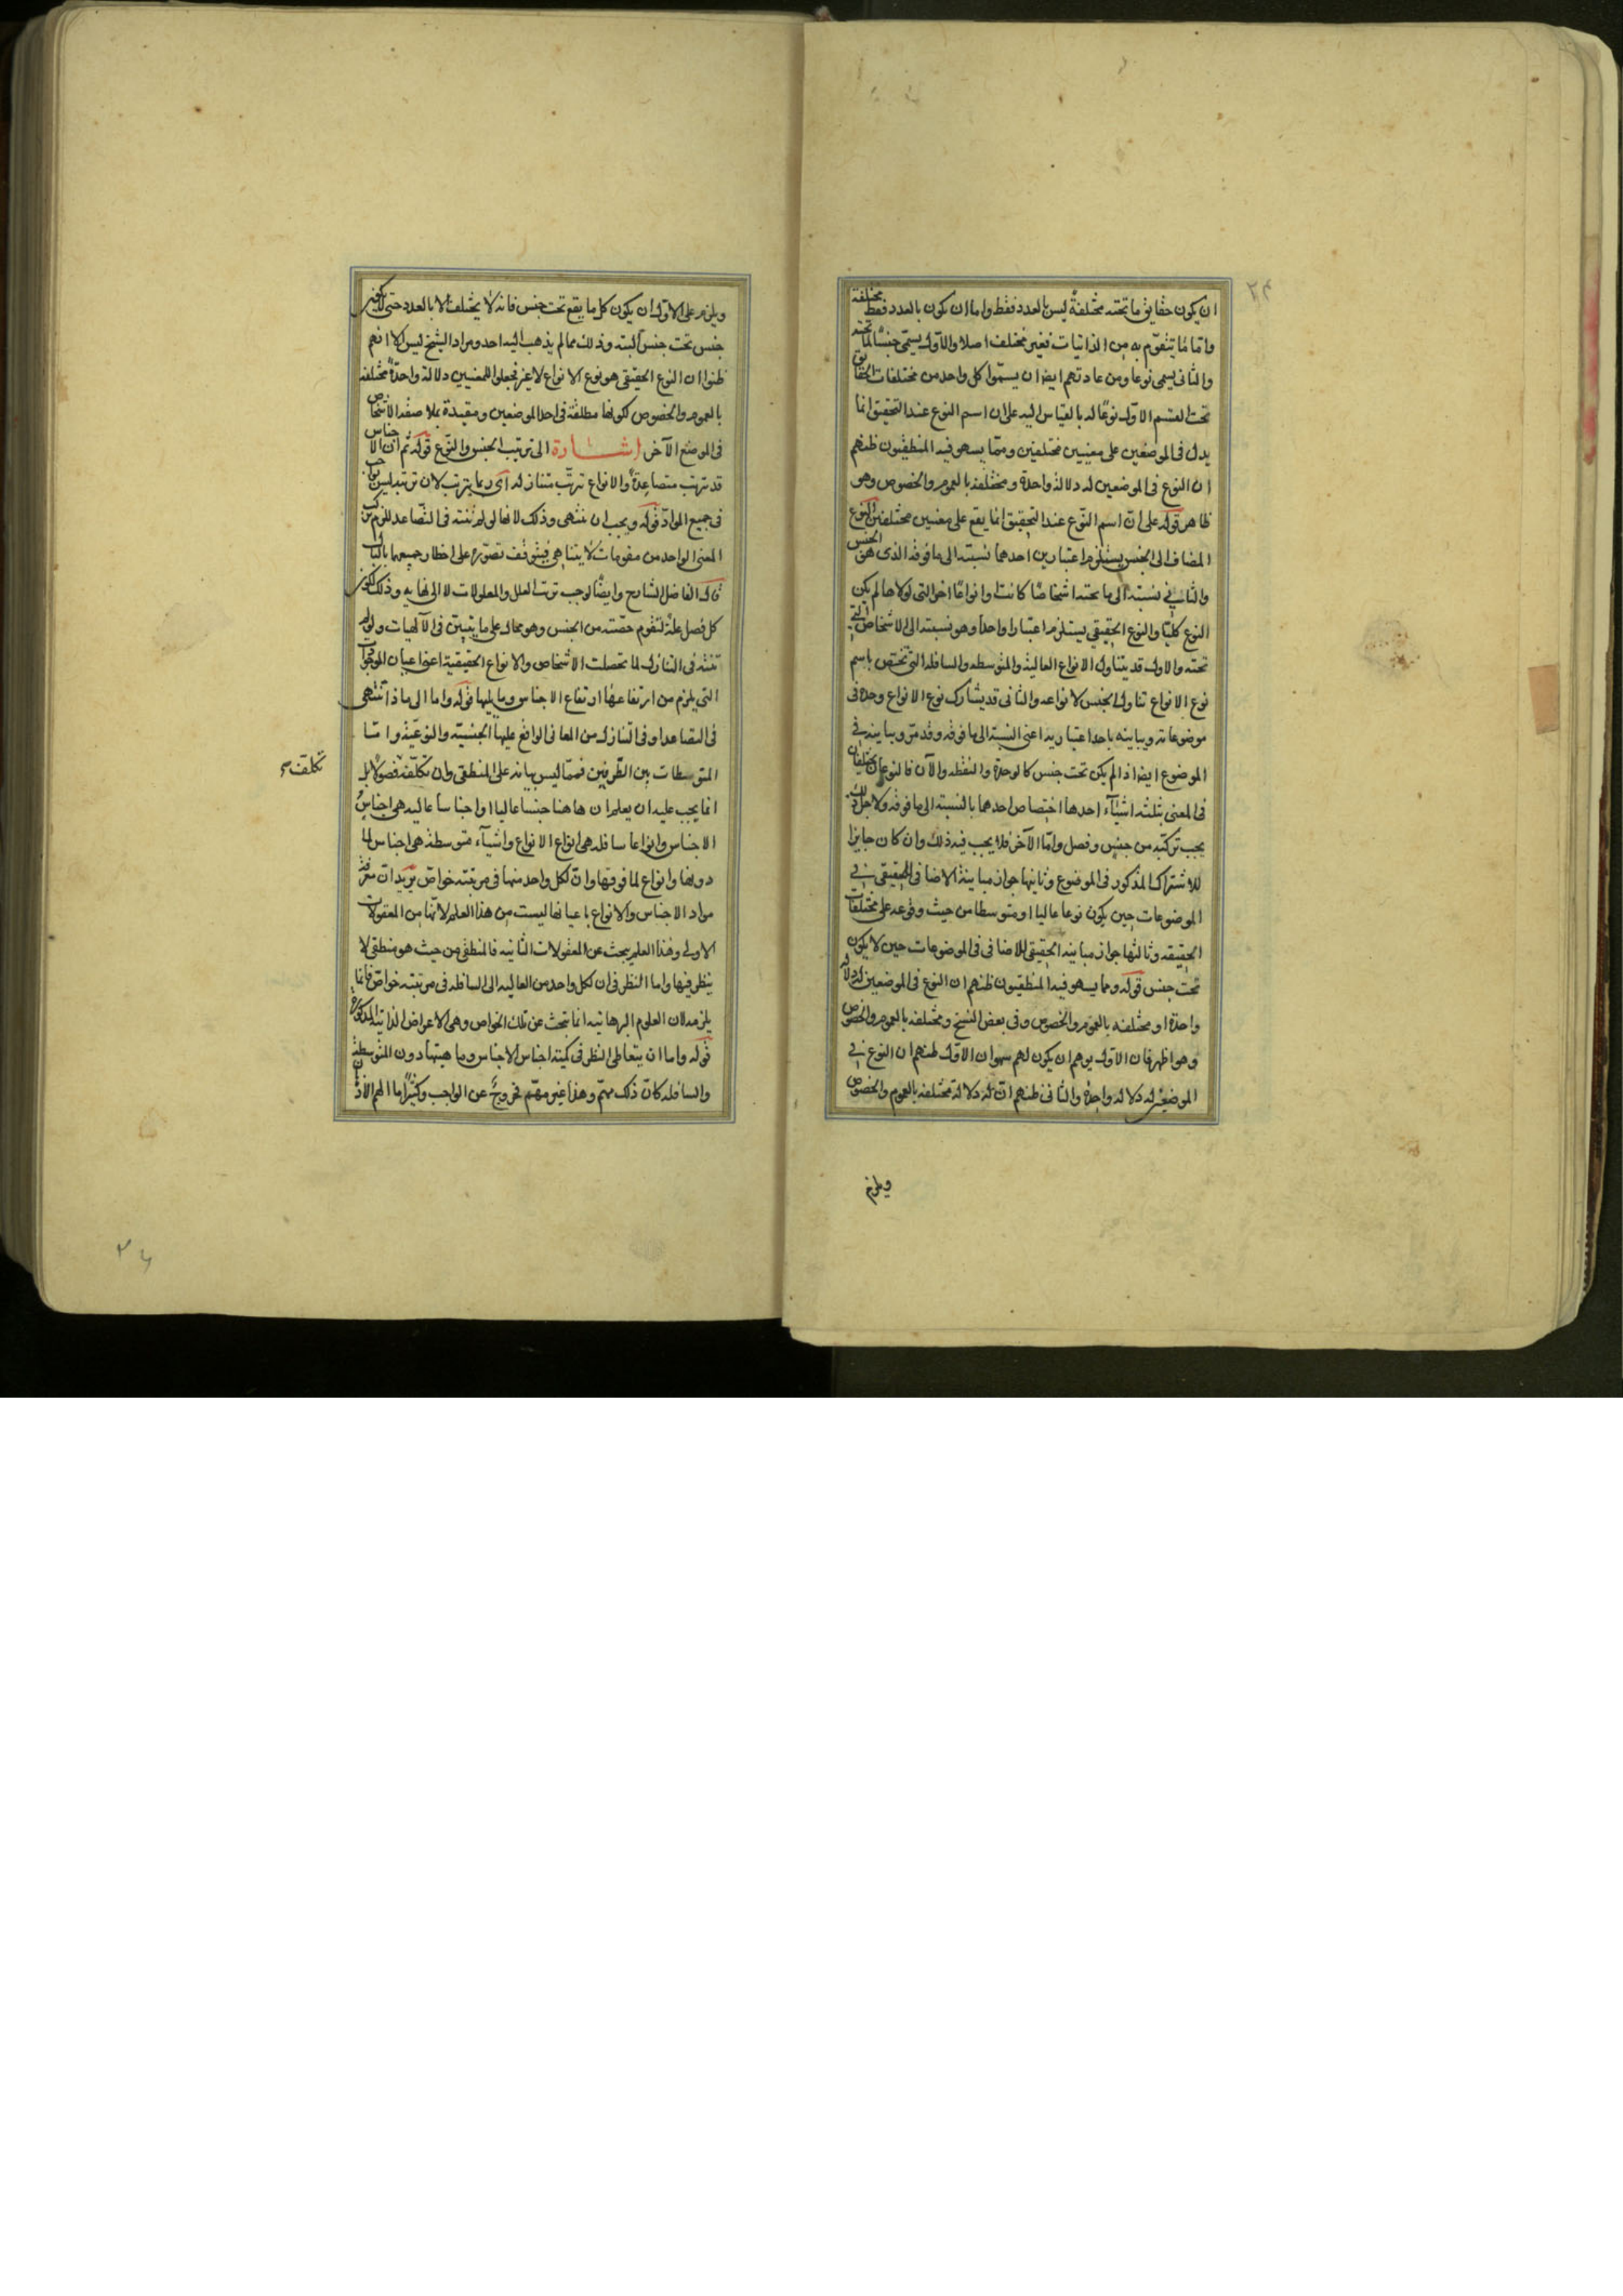 ان يكون حقايق ما تحته مختلفة ليس بالعدد فقط واما ان يكون بالعدد فقط مختلفة
واما ما يتقوم به من الذاتيات فغير مختلف اصلا والاول يسمى جنسا لما تحته
والثانى يسمى نوعا ومن عادتهم ايضا ان يسموا كل واحد من مختلفات الحقايق
تحت القسم الاول نوعا له بالقياس اليه على ان اسم النوع عند التحقيق انما
يدل فى الموضعين على معنيين مختلفين ومما يسهو فيه المنطقيون ظنهم
ان النوع فى الموضعين له دلالة واحدة ومختلفة بالعموم والخصوص وهو
ظاهر قوله على ان اسم النوع عند التحقيق انما يقع على معنيين مختلفين النوع
المضاف الى الجنس يستلزم اعتبارين احدهما نسبته الى ما فوقه الذى هو الجنس
والثانى نسبته الى ما تحته اشخاصا كانت او انواعا اخر التى لولاها لم يكن
النوع كليا والنوع الحقيقي يستلزم اعتبارا واحدا وهو نسبته الى الاشخاص التى
تحته والاول قد يتناول الانواع العالية والمتوسطه والسافله التى تختص باسم
نوع الانواع تناول الجنس لانواعه والثانى قد يشارك نوع الانواع وحده فى
موضوعاته ويباينه باحد اعتباريه اعنى النسبة الى ما فوقه وقد مر ويباينه فى
الموضوع ايضا اذ الم يكن تحت جنس كالوحدة والنقطه والآن فالنوعان مختلفان
فى المعنى بثلثه اشياء احدها اختصاص احدهما بالنسبة الى ما فوقه ولاجل ذلك
يجب تركبه من جنس وفصل واما الآخر فلا يجب فيه ذلك وان كان جايزا
للاشتراك المذكور فى الموضوع وثانيها جواز مباينة الاضافى للحقيقى فى
الموضوعات حين يكون نوعا عاليا او متوسطا من حيث وقوعه على مختلفات
الحقيقه وثالثها جواز مباينة الحقيقى للاضافى فى الموضوعات حين لا يكون
تحت جنس قوله ومما يسهو فيه المنطقيون ظنهم ان النوع فى الموضعين له دلالة
واحدة او مختلفه بالعموم والخصوص وفى بعض النسخ ومختلفه بالعموم والخصوص
وهو اظهر فان الاول يوهم ان يكون لهم سهوان الاول ظنهم ان النوع فى
الموضعين له دلاله واحدة والثانى ظنهم ان له دلالة مختلفه بالعموم والخصوص
ويلزم
ويلزم على الاول ان يكون كل ما يقع تحت جنس فانه لا يختلف الا بالعدد حتى لا يكون
جنس تحت جنس البته وذلك مما لم يذهب اليه احد ومراد الشيخ ليس الا انهم
ظنوا ان النوع الحقيقى هو نوع الانواع لا غير فجعلوا للمعنيين دلالة واحدة مختلفه
بالعموم والخصوص لكونها مطلقة فى احد الموضعين ومقيدة بملاصقه الاشخاص
فى الموضع الآخر اشارة الى ترتيب الجنس والنوع قوله ثم ان الاجناس
قد تترتب متصاعدة والانواع تترتب متنازله اى ربما يترتب لان ترتبه ليس بواجب
فى جميع المواد قوله ويجب ان تنتهى وذلك لانها لو لم تنته فى التصاعد للزم تركب
المعنى الواحد من مقومات لا يتناهى فيتوقف تصوره على اخطار جميعها بالبال
قال الفاضل الشارح وايضا لوجب ترتب العلل والمعلولات لا الى نهايه وذلك لكون
كل فصل علة لتقوم حصته من الجنس وهو محال على ما يتبين فى الآلهيات ولو لم
تنته فى التنازل لما تحصلت الاشخاص والانواع الحقيقية اعنى اعيان الموجودات
التى يلزم من ارتفاعها ارتفاع الاجناس وما يليها قوله واما الى ماذا تنتهى
فى التصاعد او فى التنازل من المعانى الواقع عليها الجنسية والنوعية واما
المتوسطات بين الطرفين فمما ليس بيانه على المنطقى وان تكلفه فضولا بل
تكلف
انما يجب عليه ان يعلم ان هاهنا جنسا عاليا او اجناسا عاليه هى اجناس
الاجناس وانواعا سافله هى انواع الانواع واشياء متوسطة هى اجناس لما
دونها وانواع لما فوقها وان لكل واحد منها فى مرتبته خواص يريد ان معرفة
مواد الاجناس والانواع باعيانها ليست من هذا العلم لانها من المعقولات
الاولى وهذا العلم يبحث عن المعقولات الثانيه فالمنطقى من حيث هو منطقى لا
ينظر فيها واما النظر فى ان لكل واحد من العاليه الى السافله فى مرتبته خواص فانما
يلزمه لان العلوم البرهانيه انما تبحث عن تلك الخواص وهى الاعراض الذاتيه المذكورة
قوله واما ان يتعاطى النظر فى كمية اجناس الاجناس وماهيتها دون المتوسطة
والسافله كان ذلك مهم وهذا غير مهم فخروج عن الواجب وكثيرا ما الهم الاذهان